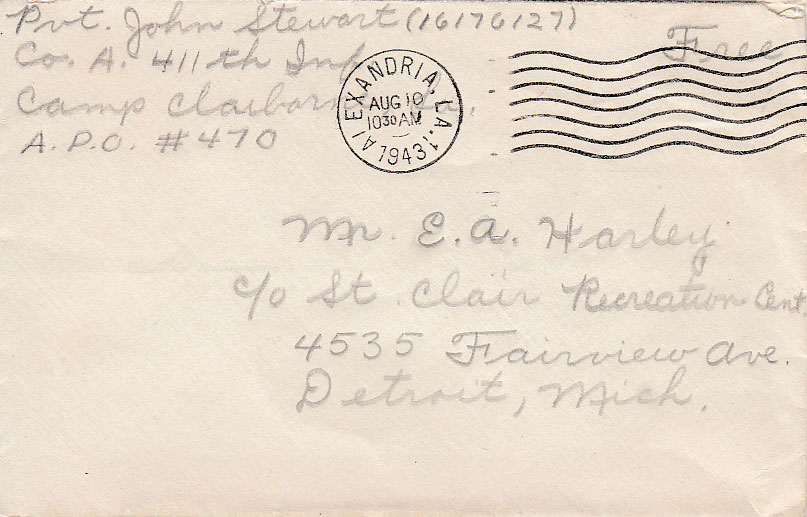 Pvt. John Stewart (16176127)
Free
Co. A. 411th Inf
Camp Claiborne La.,
A.P.O. #470
ALEXANDRIA, LA. 1
AUG 10
1030 AM
1943
Mr. E. A. Harley
c/o St. Clair Recreation Cent.
4535 Fairview Ave.
Detroit, Mich.